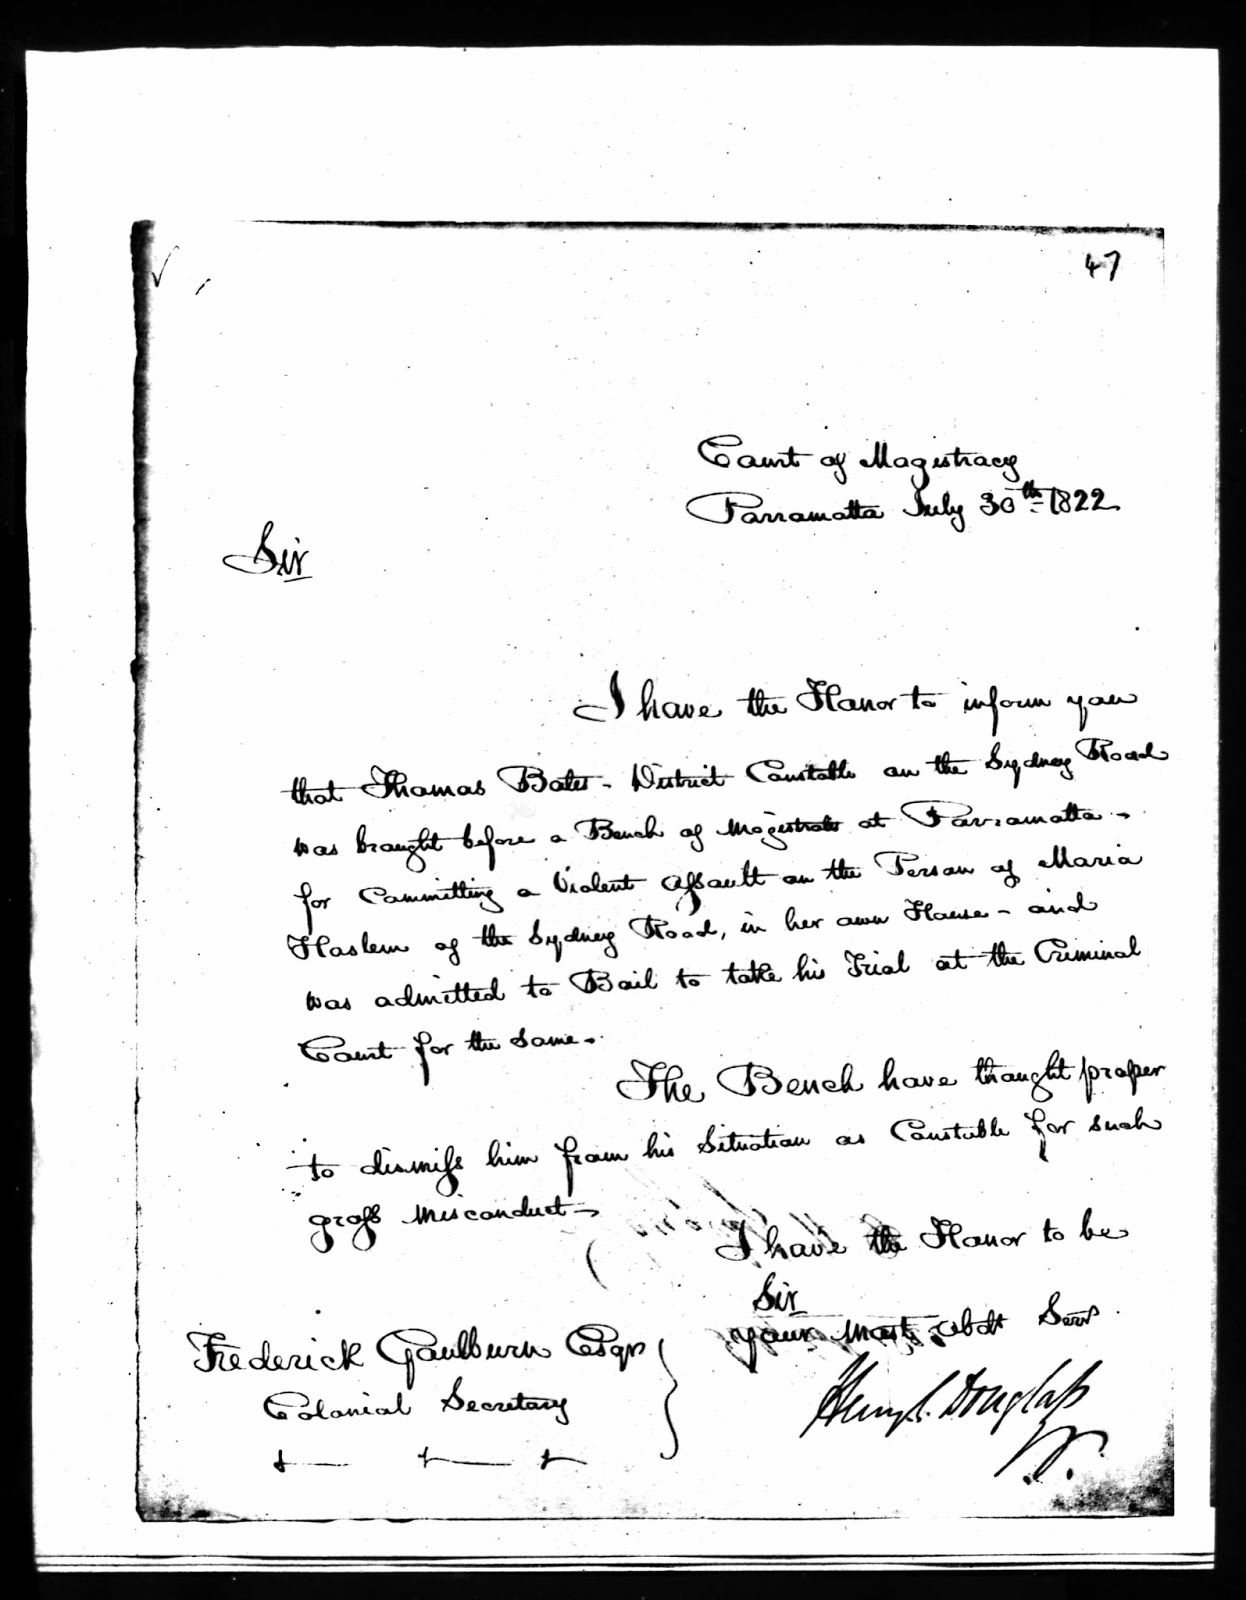 47
Court of Magistracy
Parramatta July 30th 1822
Sir
I have the Honor to inform you
that Thomas Bates - District Constable on the Sydney Road
was brought before a Bench of Magistrates at Parramatta -
for Committing a Violent Assault on the Person of Maria
Haslem of the Sydney Road, in her own House - and
was admitted to Bail to take his Trial at the Criminal
Court for the Same -
The Bench have thought proper
to dismiss him from his Situation as Constable for such
gross Misconduct -
I have the Honor to be
Sir
your Most Obdt Servt
Henry G. Douglass
J.P.
Frederick Goulburn Esqr
Colonial Secretary